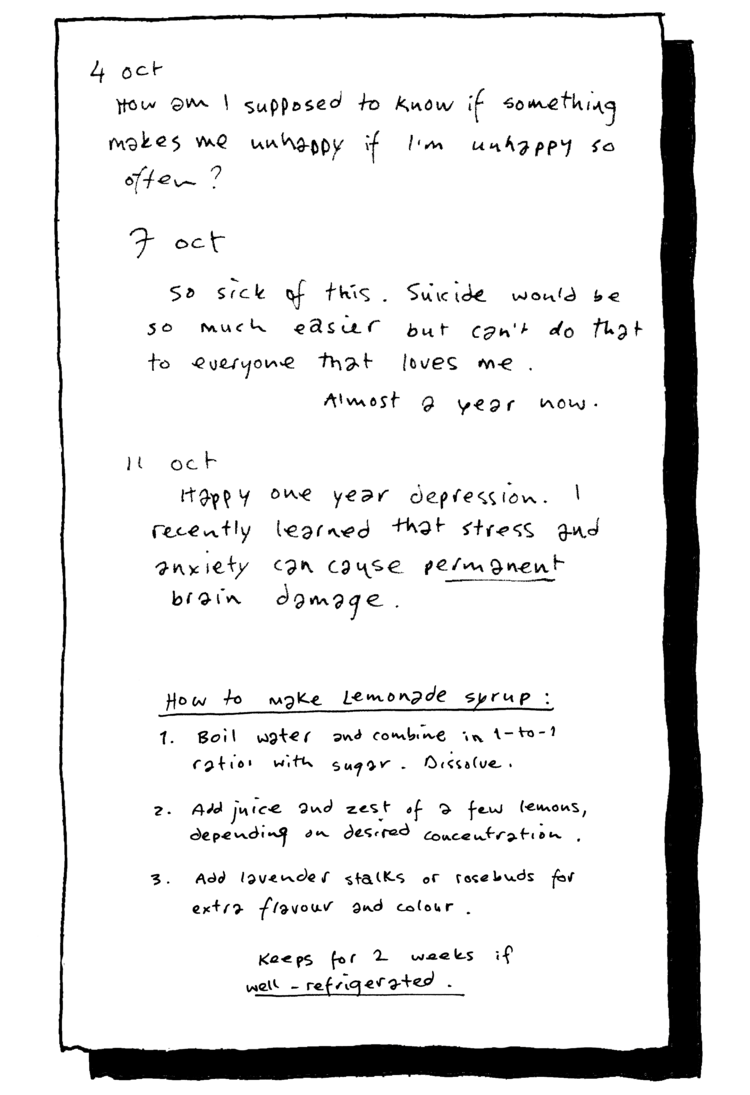 4 oct
How am I supposed to know if something
makes me unhappy if I'm unhappy so
often?
7 oct
So sick of this. Suicide would be
so much easier but can't do that
to everyone that loves me.
Almost a year now.
11 oct
Happy one year depression. I
recently learned that stress and
anxiety can cause permanent
brain damage.
How to make Lemonade syrup:
1. Boil water and combine in 1-to-1
ratio with sugar. Dissolve.
2. Add juice and zest of a few lemons,
depending on desired concentration.
3. Add lavender stalks or rosebuds for
extra flavour and colour.
Keeps for 2 weeks if
well-refrigerated.